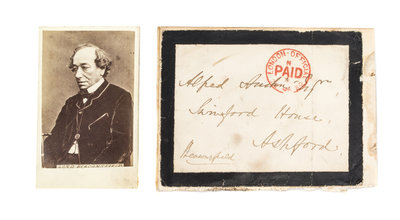 LORD BEACONSFIELD
LONDON-OFFICIAL
PAID
Alfred Austin Esqr
Swinford House,
Ashford.
Beaconsfield